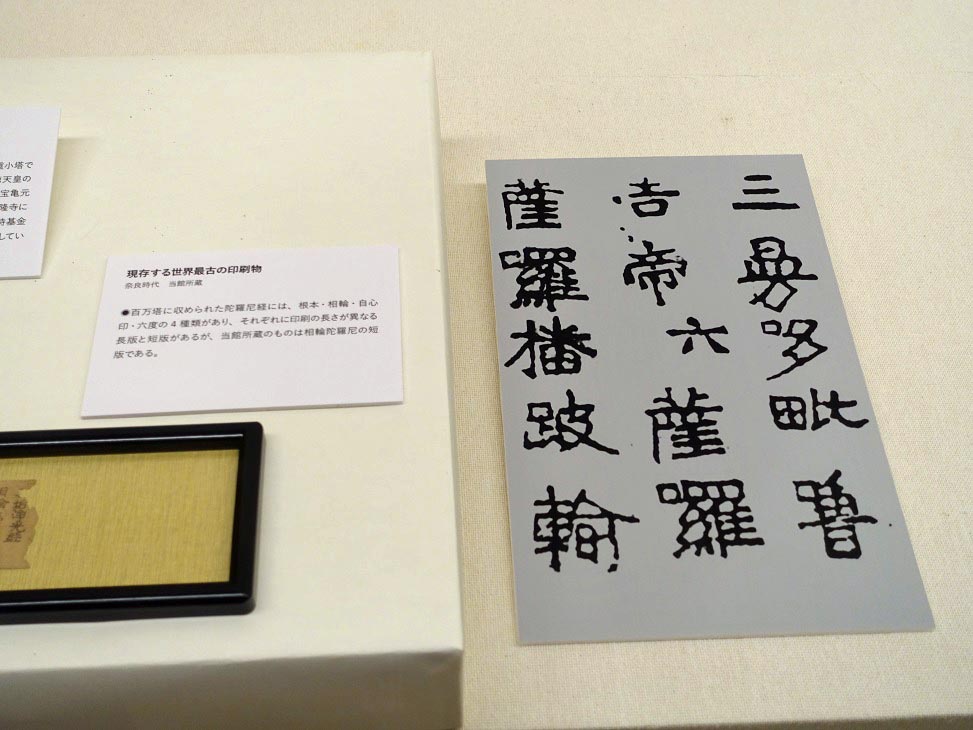 小塔で
天皇の
宝亀元
隆寺に
持基金
してい
現存する世界最古の印刷物
奈良時代　当館所蔵
●百万塔に収められた陀羅尼経には、根本・相輪・自心
印・六度の4種類があり、それぞれに印刷の長さが異なる
長版と短版があるが、当館所蔵のものは相輪陀羅尼の短
版である。
三曼哆毗魯
吉帝六薩囉
薩囉播跛輸